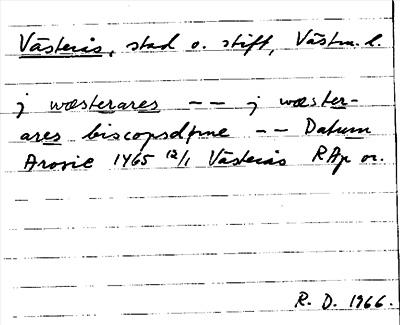 Västerås, stad o. stift, Västm. l.
j wæsterares -- j wæster-
ares biscopsdøme -- Datum
Arosie 1465 12/1 Västerås RAp or.
R. D. 1966.